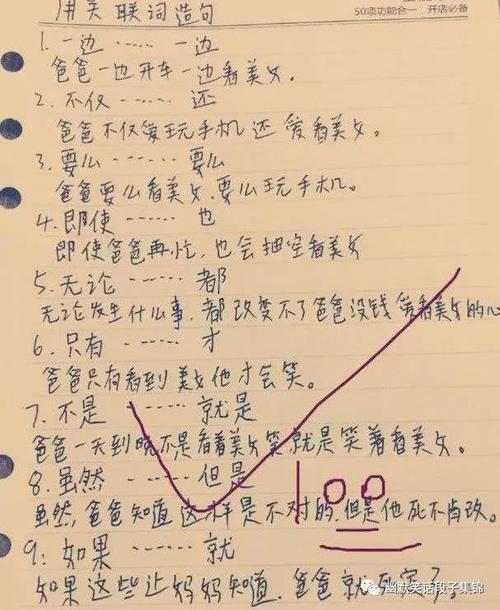 用关联词造句
50项功能合一，开店必备
1. 一边 …… 一边
爸爸一边开车一边看美女.
2. 不仅 …… 还
爸爸不仅爱玩手机还爱看美女。
3. 要么 …… 要么
爸爸要么看美女.要么玩手机。
4. 即使 …… 也
即使爸爸再忙，也会抽空看美女
5. 无论 …… 都
无论发生什么事，都改变不了爸爸没钱爱看美女的心
6. 只有 …… 才
爸爸只有看到美女他才会笑。
7. 不是 …… 就是
爸爸一天到晚不是看着美女笑就是笑着看美女。
8. 虽然 …… 但是
虽然，爸爸知道这样是不对的，但是他死不肯改。
100
9. 如果 …… 就
如果这些让妈妈知道，爸爸就
幽默笑话段子集锦